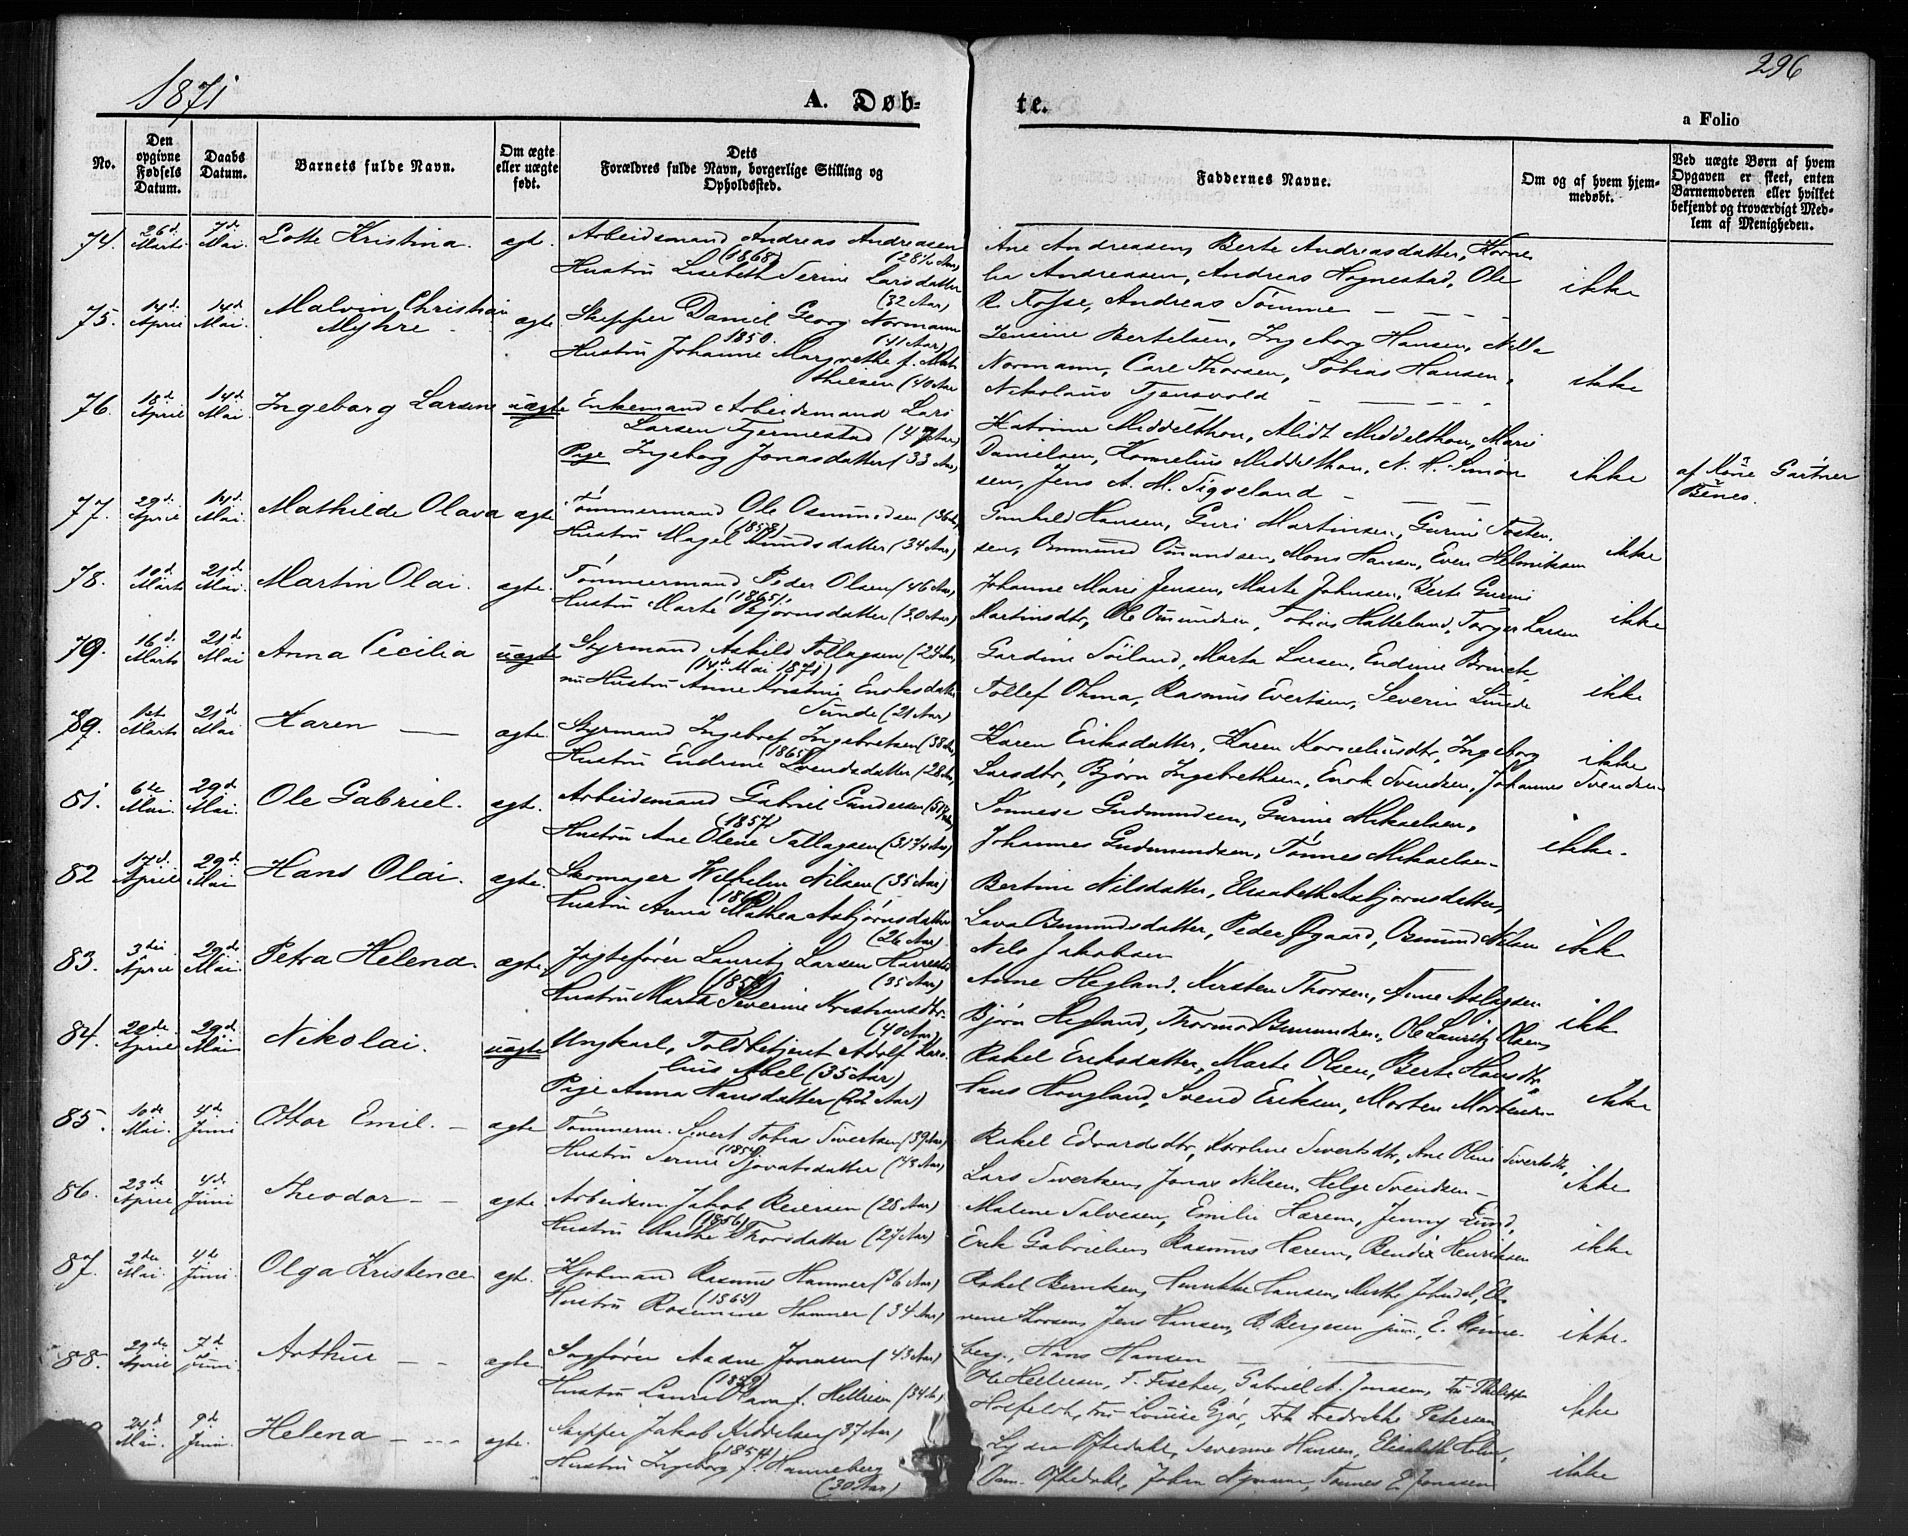 1871
A. Døb-
te.
296
a Folio
No.
Den opgivne Fødsels Datum.
Daabs Datum.
Barnets fulde Navn.
Om ægte eller uægte født.
Dets Forældres fulde Navn, borgerlige Stilling og Opholdssted.
Faddernes Navne.
Om og af hvem hjemmedøbt.
Ved uægte Børn af hvem Opgaven er skeet, enten Barnemoderen eller hvilket bekjendt og troværdigt Medlem af Menigheden.
74. 26d. Marts 7de Mai Lotte Kristina. ægte. Arbeidsmand Andreas Andreasen
(1868) (28½ Aar)
Hustru Lisebeth Serine Larsdatter
(32 Aar)
Ane Andreasen, Berte Andreasdatter, Korne
lia Andreasen, Andreas Hognestad, Ole
R. Fosse, Andreas Tømme
ikke
75. 14d. April 14d. Mai Malvin Christian
Myhre ægte Skipper Daniel Georg Normann
1850. (41 Aar)
Hustru Johanne Margrethe f. Mat
thiesen (40 Aar
Jensine Bertelsen, Ingeborg Hansen, Nilla
Normann, Carl Thorsen, Tobias Hansen,
Nikolaus Tjensvold
ikke
76. 18d. April 14d. Mai Ingeborg Larsine uægte Enkemand Arbeidsmand Lars
Larsen Tjermestad (47 Aar)
Pige Ingeborg Jonasdatter (33 Aar)
Katrine Middelthon, Alidt Middelthon, Marie
Danielsen, Kornelius Middelthon, N. H. Simon
sen, Jens A. M. Sigveland
ikke
af Kone Gartner
Benes.
77. 29d. April 14d. Mai Mathilde Olava ægte Tømmermand Ole Osmundsen (36 Aar)
(1858)
Hustru Magel Knudsdatter (34 Aar)
Gunhild Hansen, Guri Martinsen, Gurine Tosten
sen, Ommund Omundsen, Mons Hansen, Even Helmiksen
ikke
78. 10d Marts 21d Mai. Martin Olai. ægte. Tømmermand Peder Olsen (46 Aar)
(1865)
Hustru Marte Bjørnsdatter (30 Aar)
Johanne Marie Jensen, Marte Johnsen, Berte Gurine
Martinsdtr, Ole Omundsen, Tobias Hatteland, Torger Larsen
ikke
79. 16d. Marts 21d Mai Anna Cecilia uægte Styrmand Askild Tollagsen (24 Aar)
(14de Mai 1871)
nu Hustru Anne Kristine Eriksdatter
Sunde (21 Aar)
Gardine Soiland, Marta Larsen, Endine
Tollef Ohma, Rasmus Evertsen, Severin Lunde
ikke
89. 1st Marts 21d Mai Karen ægte. Styrmand Ingebret Ingebretsen (38 Aar)
(1865)
Hustru Endrine Svendsdatter (28 Aar)
Karen Eriksdatter, Karen Korneliusdtr, Ingeborg
Larsdtr, Bjørn Ingebrethsen, Erik Svendsen, Johannes Svendsen
ikke
81. 6te Mai. 29d. Mai. Ole Gabriel. ægte. Arbeidsmand Gabriel Gundersen
(1857)
Hustru Ane Olene Tallagsen (31¼ Aar)
Sønneve Gudmundsen, Gurine Mikaelsen,
Johannes Gudmundsen, Tønnes Mikaelsen
ikke.
82 17d. April 29d. Mai Hans Olai. ægte. Skomager Wilhelm Nilsen (35 Aar)
Hustru Anna Mathea Asbjørnsdatter
(26 Aar)
Bertine Nilsdatter, Elisabeth Asbjørnsdatter,
Lava Osmundsdatter, Peder Øgaard, Osmund Nilsen
Nils Jakobsen
ikke
83. 3die April 29de Mai. Petra Helena. ægte. Jagtefører Lauritz Larsen
(35 Aar)
Hustru Marta Severine Kristiansdtr.
(40 Aar)
Anne Hegland, Kirsten Thorsen, Anne Aslagsen
Bjørn Hegland, Thormod Osmundsen, Ole Lauritz Olsen,
ikke
84. 20de. April 29d. Mai Nikolai. uægte Ungkarl, Toldbetjent Adolf
Abel (35 Aar)
Pige Anna Hansdatter (22 Aar)
Rakel Eriksdatter, Marte Olsen, Berte Hansdtr,
Hans Hougland, Svend Eriksen, Morten Mortensen
ikke
85. 10de Mai. 4de Juni Ottar Emil. ægte Tømmerm. Sivert Tobias Sivertsen (39 Aar)
(1854)
Hustru Serine Sjovatsdatter (43 Aar)
Rakel Edvardsdtr, Karoline Sivertsdtr, Ane Oline Sivertsdtr,
Lars Sivertsen, Jonas Nilsen, Helge Svendsen
ikke
86. 23de April 4de Juni Theodor ægte Arbeidsm. Jakob Reiersen (28 Aar)
(1856)
Hustru Marthe Thorsdatter (27 Aar)
Malene Salvesen, Emilie Hærem, Jenny Lund,
Erik Gabrielsen, Rasmus Hærem, Bendix Henriksen
ikke
87. 2den Mai. 4de Juni. Olga Kristence ægte. Kjøbmand Rasmus Hammer (36 Aar)
(1864)
Hustru Rosamine Hammer (34 Aar)
Rakel Berntsen, Henrikke Hansen, Merthe
Thorsen, Jens Hansen, B. Bergesen jun., E. Rønne
berg., Hans Hansen
ikke.
88. 29de April 7d. Juni. Arthur ægte. Sagfører Aadne Jonassen (43 Aar)
Hustru Laura f. Helliesen (34 Aar)
Helliesen, T. Fischer, Gabriel A. Jonassen, Fru
Fru Louise Gjør, Frk Fredrikke Petersen
ikke
24d. Mai. 9d. Juni. Helena ægte. Skipper Jakob Kiddelsen (37 Aar)
Hustru Ingeborg f. Hanneberg
(30 Aar)
Lydia Oftedahl, Severine Hansen, Elisabeth Holm,
Oftedahl, Johan Nyman, Tønnes E. Jonassen
ikke